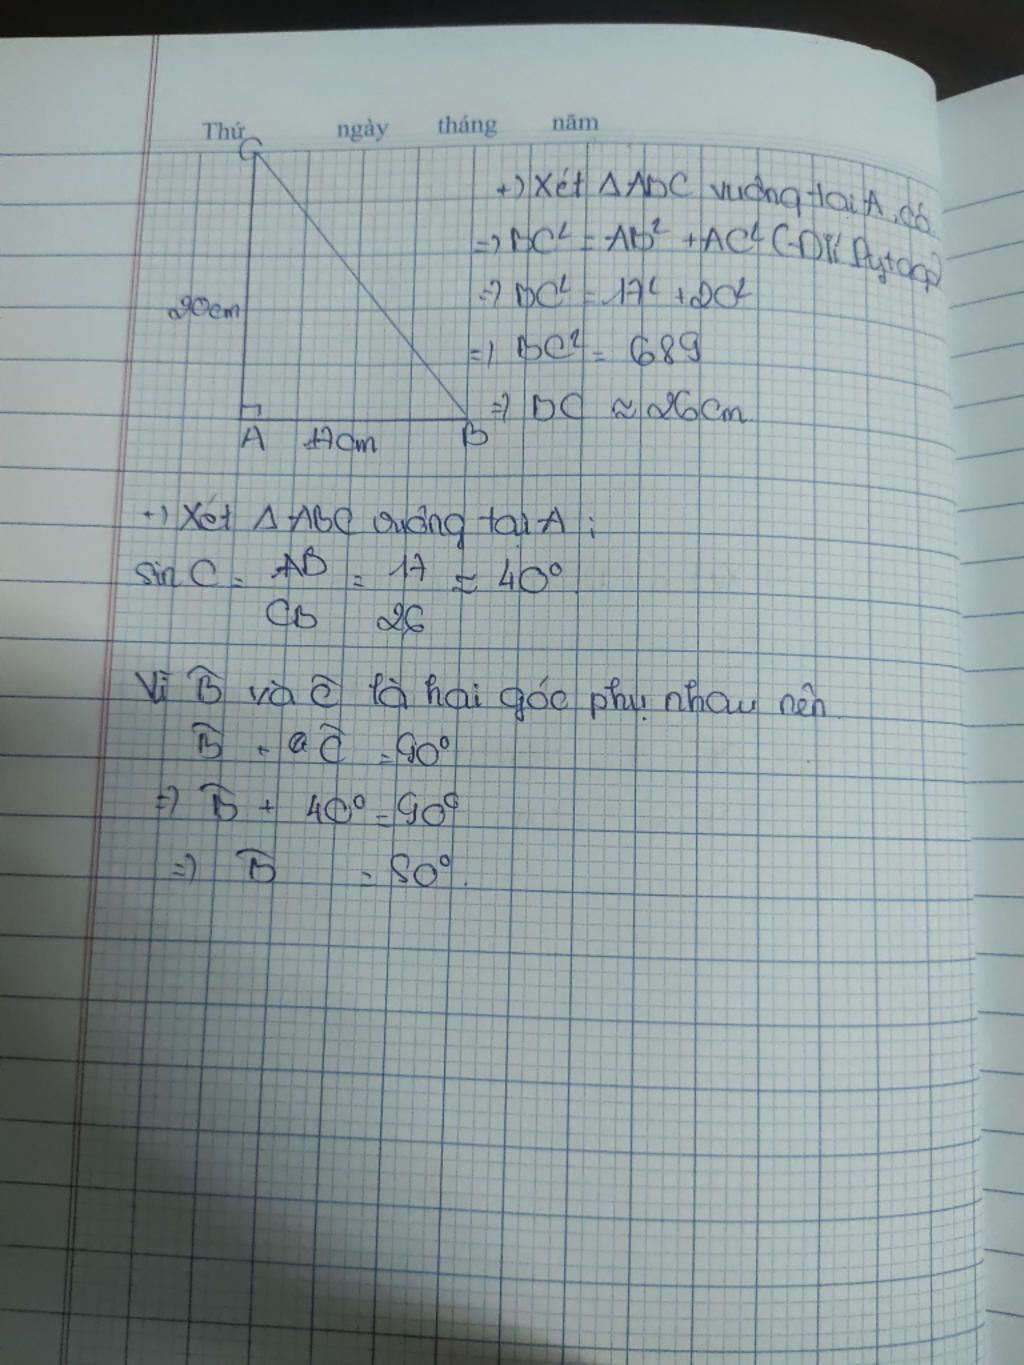 Thứ ngày tháng năm
C
+) Xét Δ ABC vuông tại A, có
=> BC² = AB² + AC² (Đlí Pytago)
20cm
=> BC² = 17² + 20²
=> BC² = 689
=> BC ≈ 26cm
A 17cm B
+) Xét Δ ABC vuông tại A :
sin C = AB/CB = 17/26 ≈ 40°
Vì B̂ và Ĉ là hai góc phụ nhau nên
B̂ + Ĉ = 90°
=> B̂ + 40° = 90°
=> B̂ = 50°.